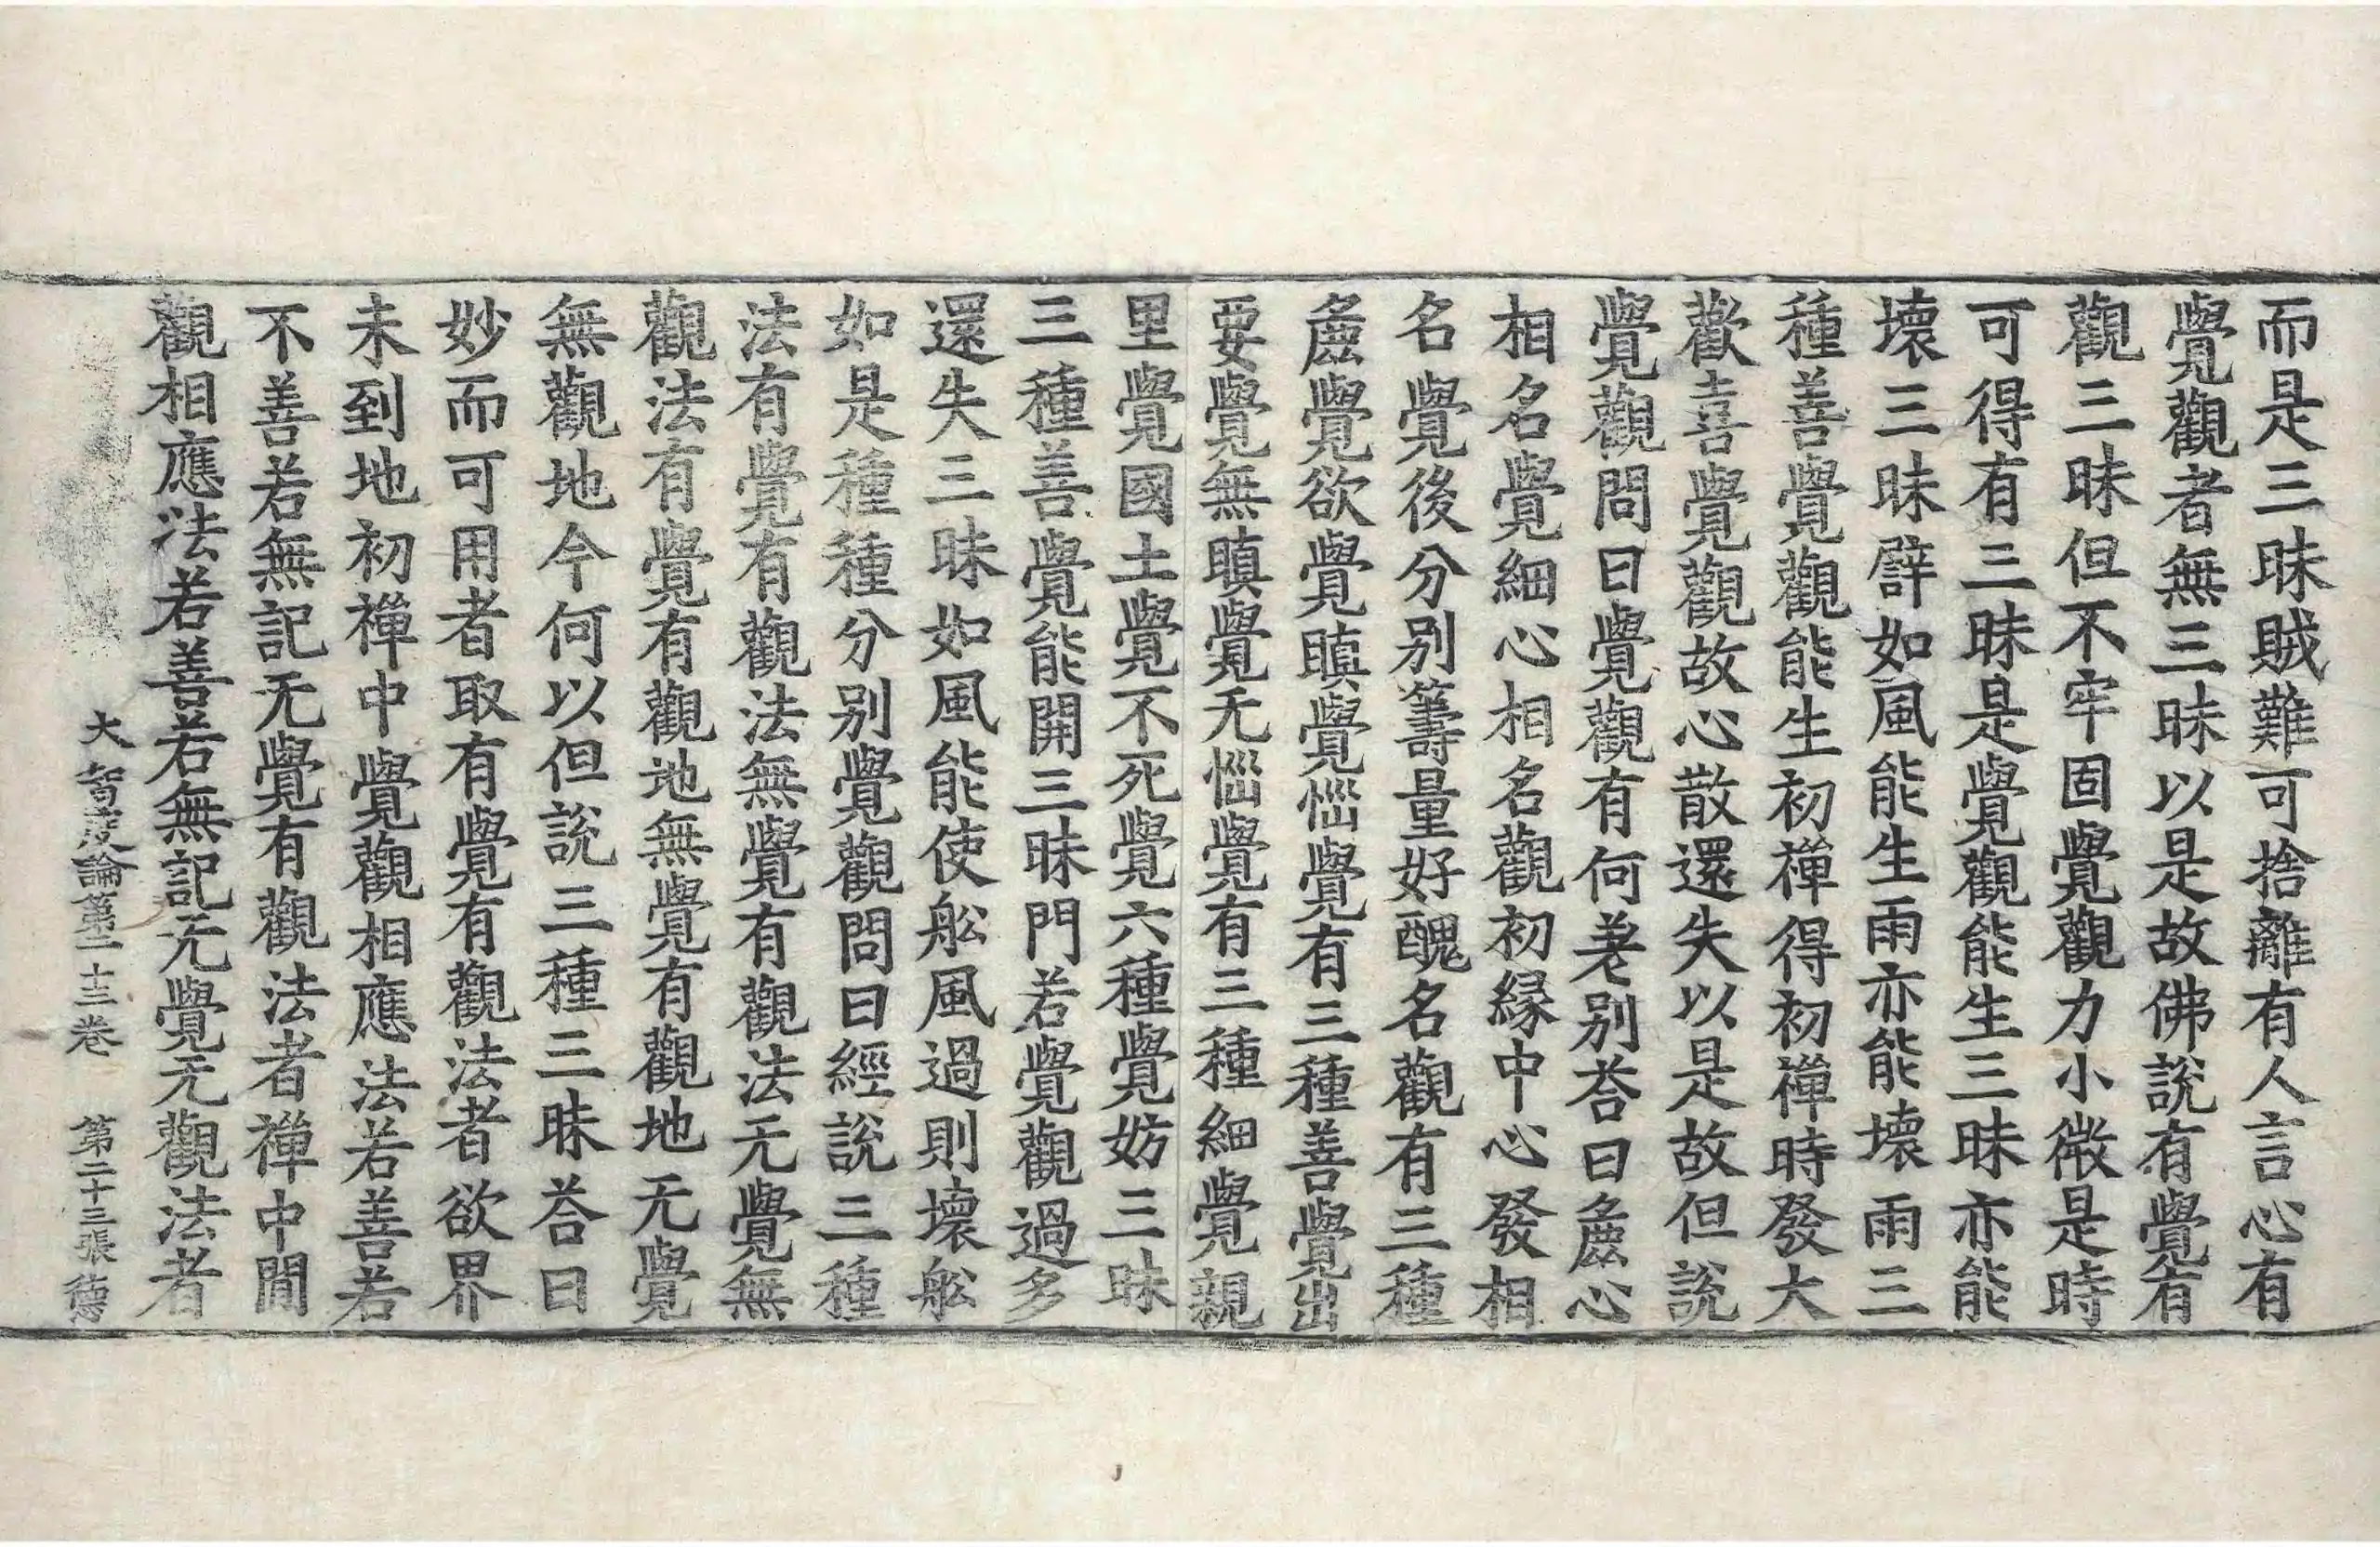 而是三昧賊難可捨離有人言心有
覺觀者無三昧以是故佛說有覺有
觀三昧但不牢固覺觀力小微是時
可得有三昧是覺觀能生三昧亦能
壞三昧譬如風能生雨亦能壞雨三
種善覺觀能生初禪得初禪時發大
歡喜覺觀故心散還失以是故但說
覺觀問曰覺觀有何差別荅曰麁心
相名覺細心相名觀初緣中心發相
名覺後分別籌量好醜名觀有三種
麁覺欲覺瞋覺惱覺有三種善覺出
要覺無瞋覺无惱覺有三種細覺親
里覺國土覺不死覺六種覺妨三昧
三種善覺能開三昧門若覺觀過多
還失三昧如風能使舩風過則壞舩
如是種種分別覺觀問曰經說三種
法有覺有觀法無覺有觀法无覺無
觀法有覺有觀地無覺有觀地无覺
無觀地今何以但說三種三昧荅曰
妙而可用者取有覺有觀法者欲界
未到地初禪中覺觀相應法若善若
不善若無記无覺有觀法者禪中間
觀相應法若善若無記无覺无觀法者
大智度論第二十三卷 第二十三張 德